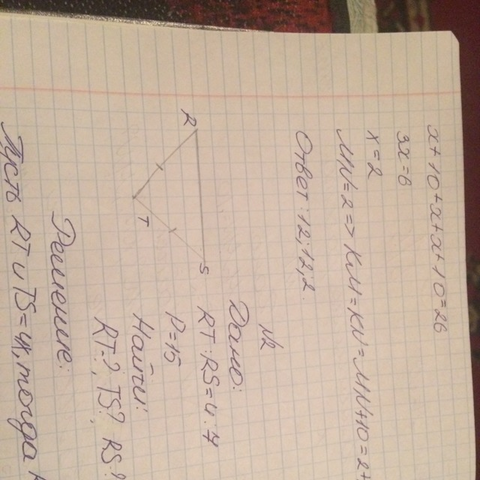 x+10+x+x+10=26
3x=6
x=2
MN=2=> KM=KN=MN+10=2+
Ответ: 12; 12; 2
№2
Дано:
RT:RS=4:7
P=15
Найти:
RT-?, TS?, RS?
R
T
S
Решение:
Пусть RT и TS=4x, тогда